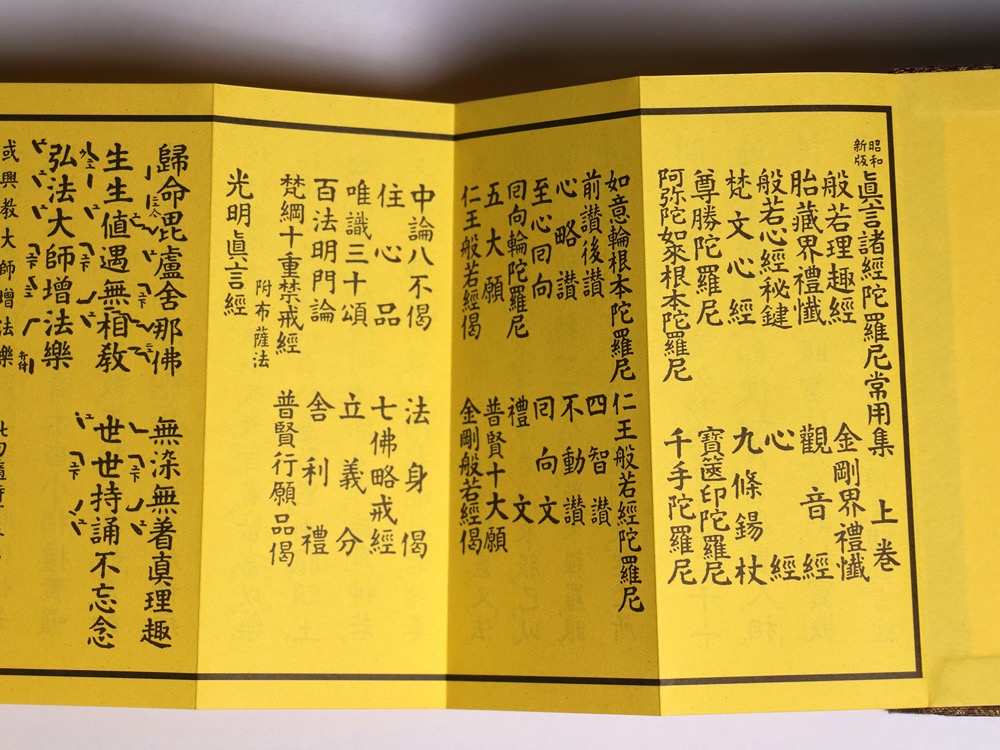 昭和新版
眞言諸經陀羅尼常用集 上卷
般若理趣經 金剛界禮懺
胎藏界禮懺 觀音經
般若心經秘鍵 心經
梵文心經 九條錫杖
尊勝陀羅尼 寶篋印陀羅尼
阿弥陀如來根本陀羅尼 千手陀羅尼
如意輪根本陀羅尼 仁王般若經陀羅尼
前讃後讃 四智讃
心略讃 不動讃
至心回向 回向文
回向輪陀羅尼 禮文
五大願 普賢十大願
仁王般若經偈 金剛般若經偈
中論八不偈 法身偈
住心品 七佛略戒經
唯識三十頌 立義分
百法明門論 舍利禮
梵綱十重禁戒經 普賢行願品偈
附布薩法
光明眞言經
歸命毘盧舍那佛 無染無着眞理趣
生生値遇無相敎 世世持誦不忘念
弘法大師增法樂
或興教大師增法樂